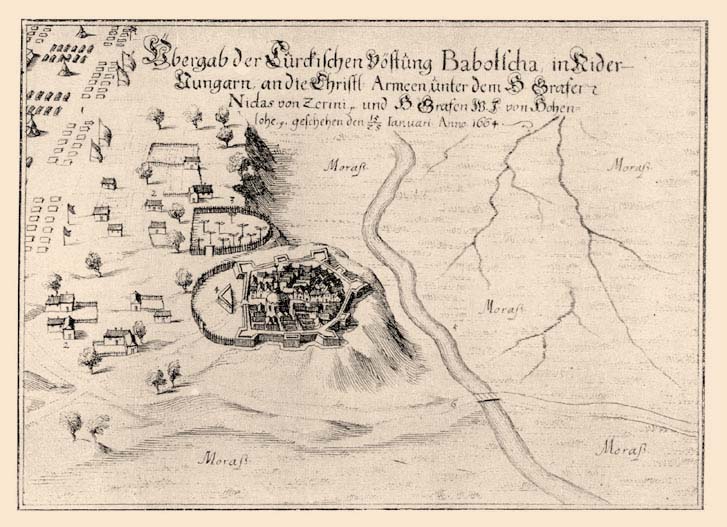 Vbergab der Türckischen Vöstung Babotscha, in Nider
Vungarn, an die Christl. Armeen, unter dem H Grafen
Niclas von Zerini, und H Grafen W. J. von Hohen-
lohe, geschehen den Ianuari. Anno. 1664
Moraß.
Moraß.
2
3
Moraß.
2
6
Moraß.
Moraß.